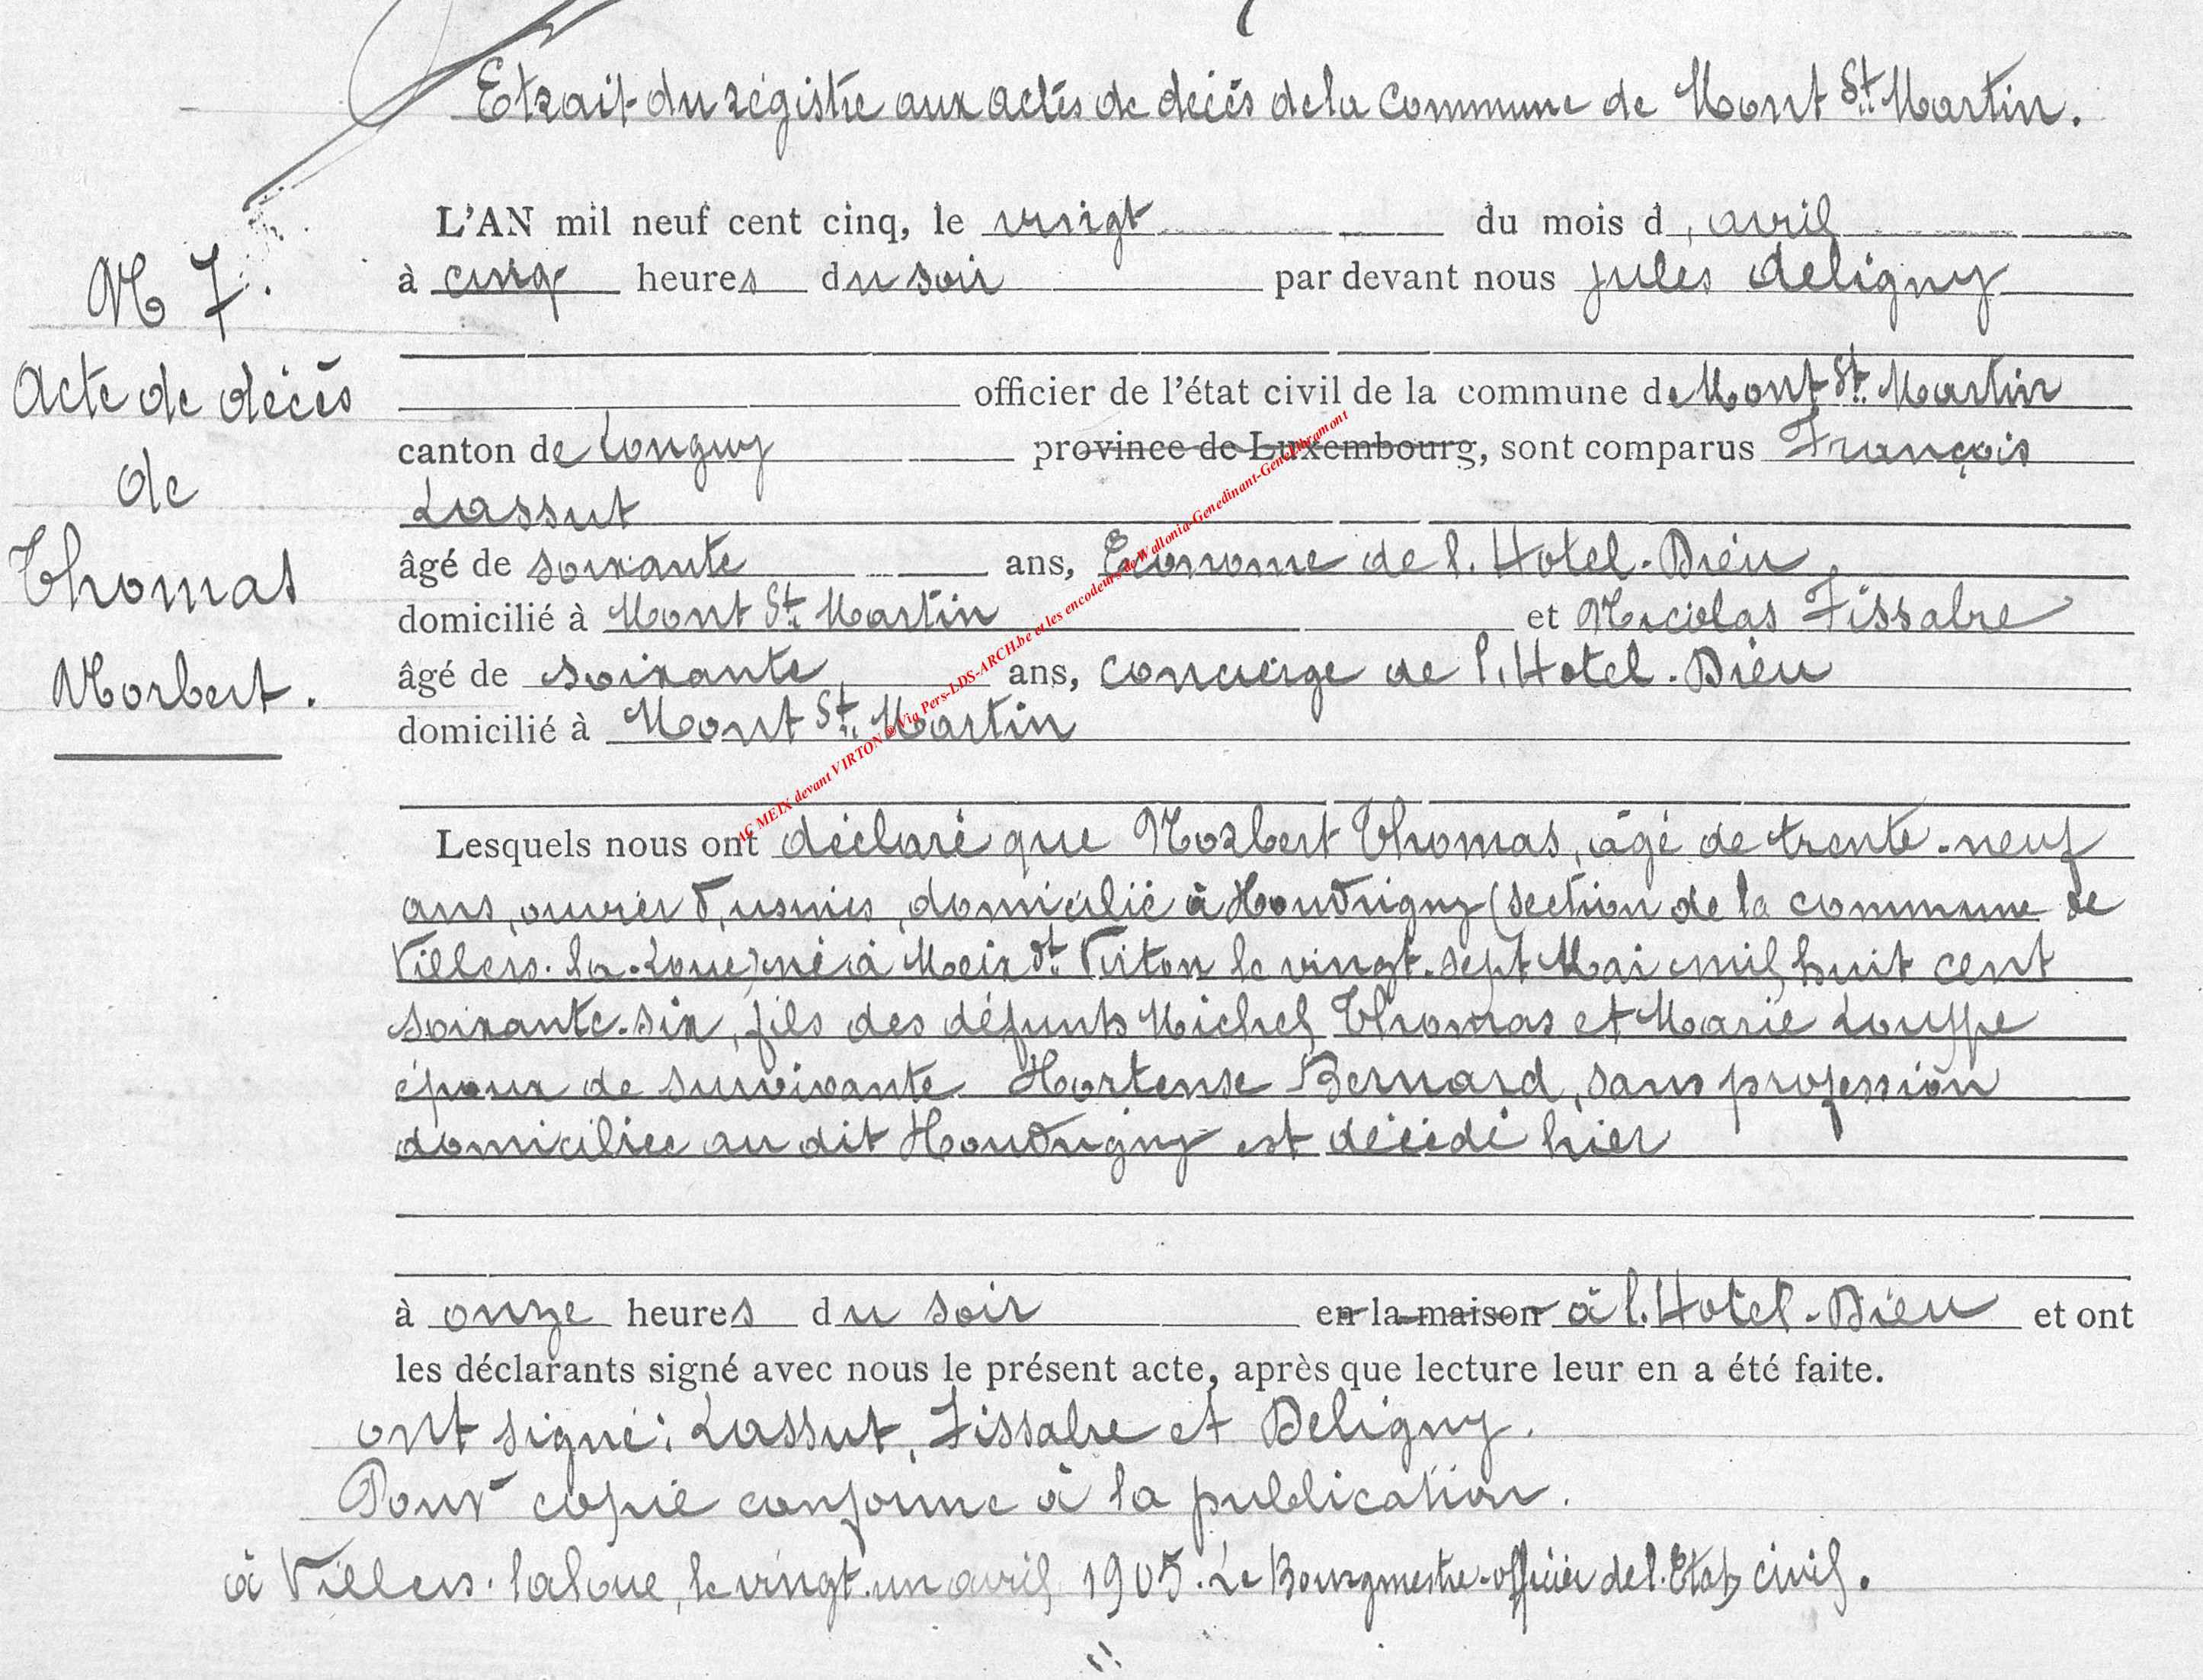 Etrait du régistre aux actés de décés de la commune de Mont St Martin.
L'AN mil neuf cent cinq, le vingt du mois d, avril
N 7.
à cinq heures du soir par devant nous jules deligny
Acte de décés
officier de l'état civil de la commune de Mont St. Martin
de
canton de Longwy province de Luxembourg, sont comparus François
Lassut
Thomas
âgé de soixante ans, Econome de l. Hotel-Dieu
domicilié à Mont St. Martin et Nicolas Fissabre
Norbert.
âgé de soixante ans, concierge de l, Hotel-Dieu
domicilié à Mont St. Martin
AC MEIX devant VIRTON @ Via Pers-LDS-ARCH.be et les encodeurs de Wallonia-Genedinant-GeneLibramont
Lesquels nous ont déclaré que Norbert Thomas, âgé de trente-neuf
ans, ouvrier d, usines, domicilié à Houdrigny (section de la commune de
Villers-la-Loue) né à Meix dt Virton le vingt-sept Mai mil huit cent
soixante-six, fils des défunts Michel Thomas et Marie Louppe
époux de survivante Hortense Bernard, sans profession
domiciliée au dit Houdrigny est décédé hier
à onze heures du soir en la maison à l. Hotel-Dieu et ont
les déclarants signé avec nous le présent acte, après que lecture leur en a été faite.
ont signé: Lassut, Fissabre et Deligny.
Pour copie conforme à la publication.
à Villers-laloue, le vingt-un avril 1905. Le Bourgmestre-officier de l. Etat civil.